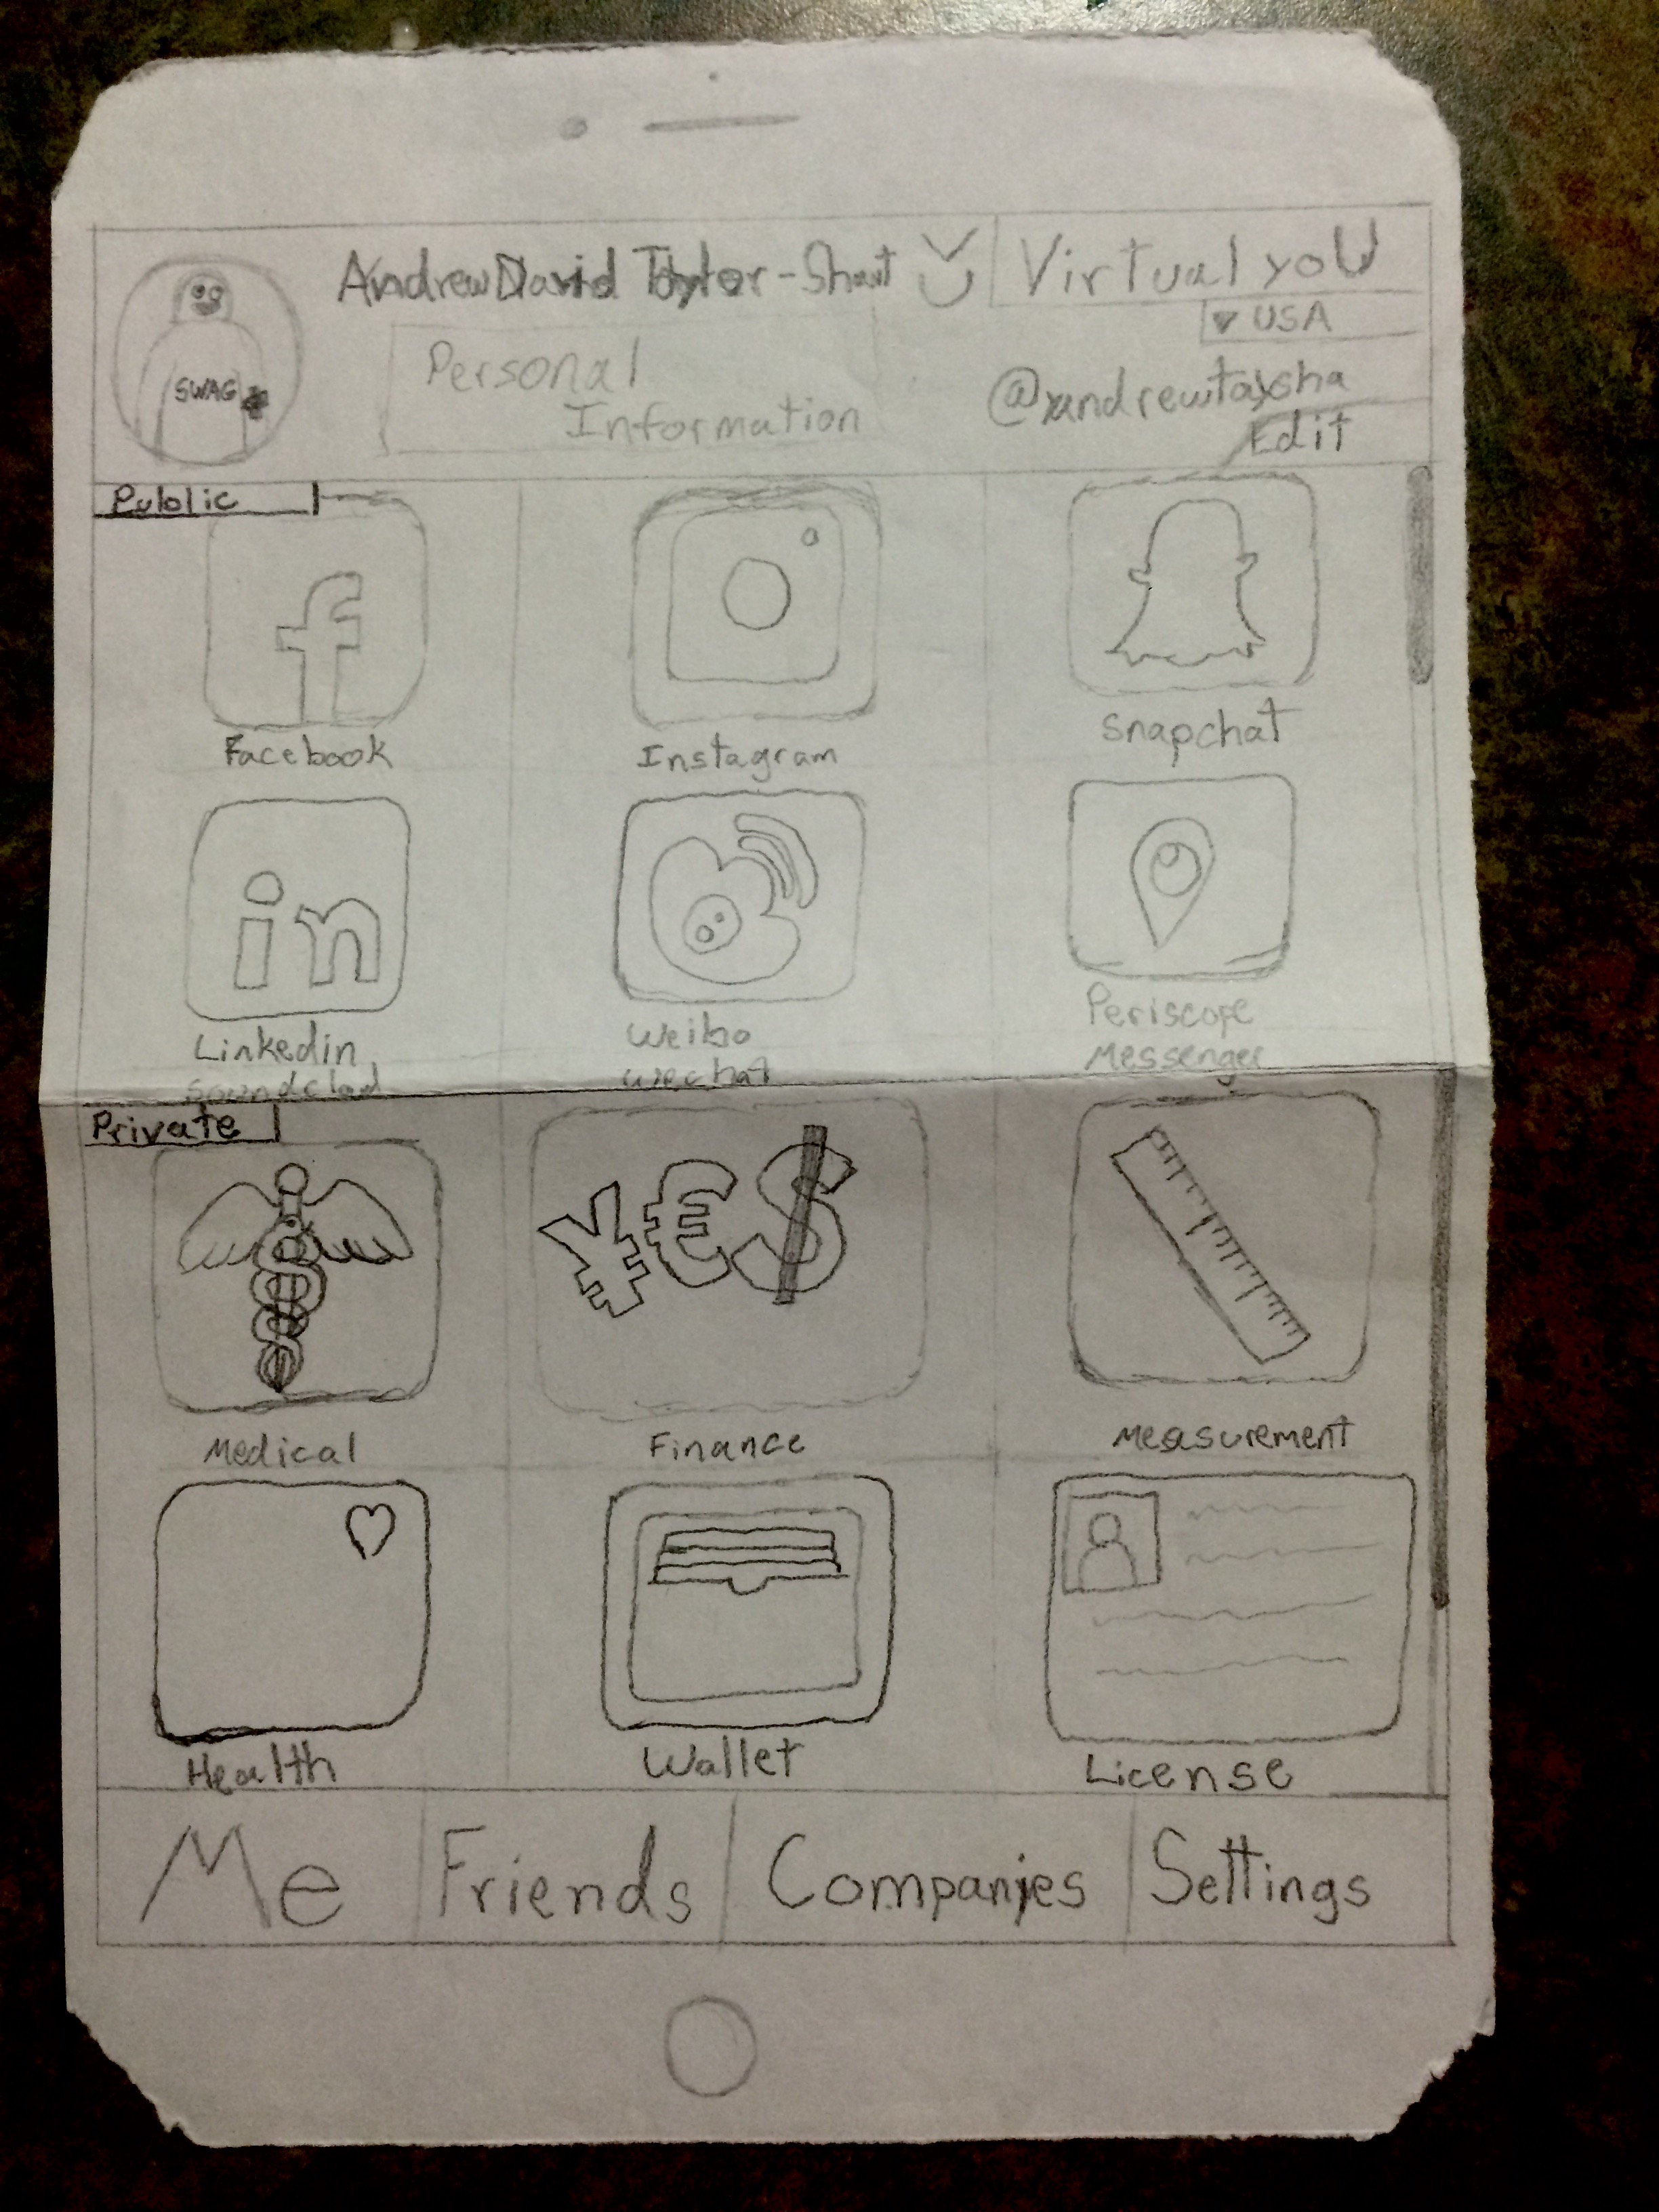 Andrew David Taylor-Shaut
Virtual yoU
▾ USA
Personal
Information
@andrewtaysha
Edit
SWAG
Public
f
Facebook
Instagram
Snapchat
in
Linkedin
Weibo
Periscope
soundclad
wechat
Messenger
Private
¥€$
Medical
Finance
Measurement
Health
Wallet
License
Me
Friends
Companies
Settings